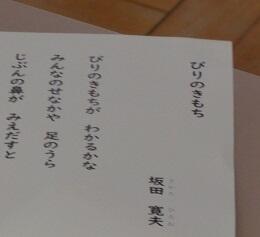 びりのきもち
坂田 寛夫
びりのきもちが わかるかな
みんなのせなかや 足のうら
じぶんの鼻が みえだすと